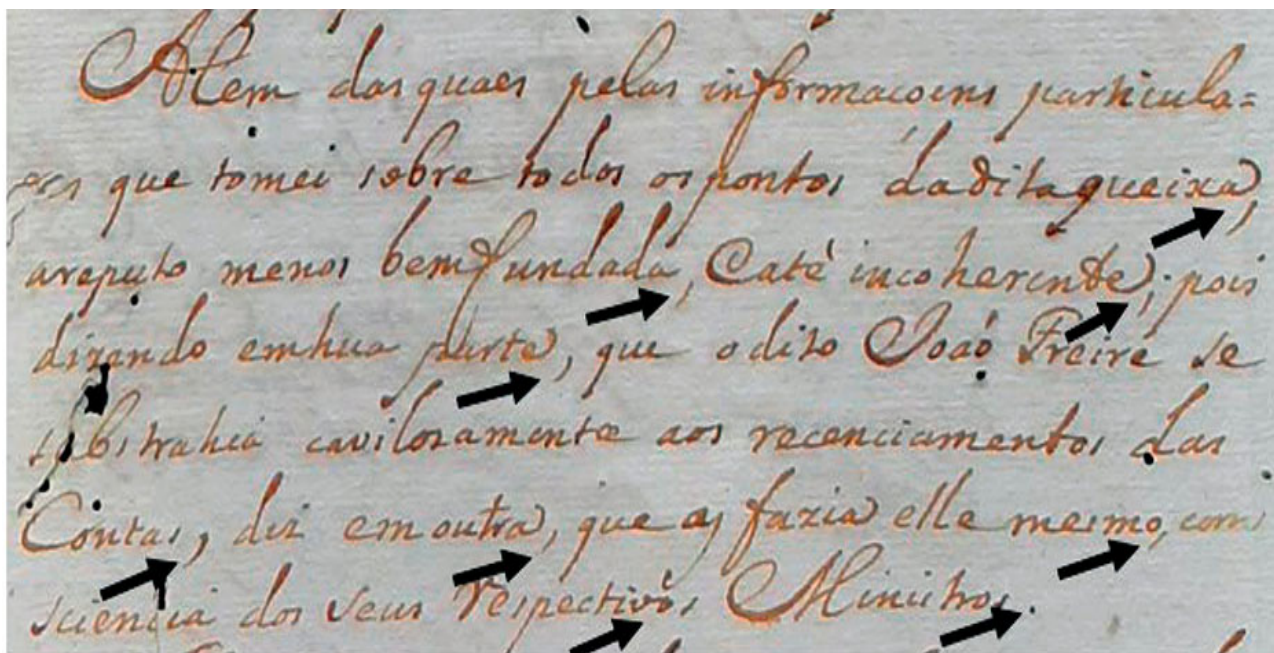 Alem das quaes pelas informacoens particula=
res que tomei sobre todos os pontos da dita queixa,
a reputo menos bem fundada, e até incoherente; pois
dizendo em hua parte, que o dito João Freire se
subtrahia cavilosamente aos recenciamentos das
Contas, diz em outra, que as fazia elle mesmo, com
sciencia dos seus respectivos Ministros.